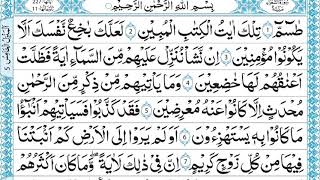 بِسْمِ اللّٰهِ الرَّحْمٰنِ الرَّحِيْمِ
طٰسٓمّٓ ۝۱ تِلْكَ اٰيٰتُ الْكِتٰبِ الْمُبِيْنِ ۝۲ لَعَلَّكَ بَاخِعٌ نَّفْسَكَ اَلَّا
يَكُوْنُوْا مُؤْمِنِيْنَ ۝۳ اِنْ نَّشَاْ نُنَزِّلْ عَلَيْهِمْ مِّنَ السَّمَآءِ اٰيَةً فَظَلَّتْ
اَعْنَاقُهُمْ لَهَا خٰضِعِيْنَ ۝۴ وَمَا يَاْتِيْهِمْ مِّنْ ذِكْرٍ مِّنَ الرَّحْمٰنِ
مُحْدَثٍ اِلَّا كَانُوْا عَنْهُ مُعْرِضِيْنَ ۝۵ فَقَدْ كَذَّبُوْا فَسَيَاْتِيْهِمْ اَنْۢبٰٓؤُا
مَا كَانُوْا بِهٖ يَسْتَهْزِءُوْنَ ۝۶ اَوَلَمْ يَرَوْا اِلَى الْاَرْضِ كَمْ اَنْۢبَتْنَا
فِيْهَا مِنْ كُلِّ زَوْجٍ كَرِيْمٍ ۝۷ اِنَّ فِيْ ذٰلِكَ لَاٰيَةً ؕ وَمَا كَانَ اَكْثَرُهُمْ